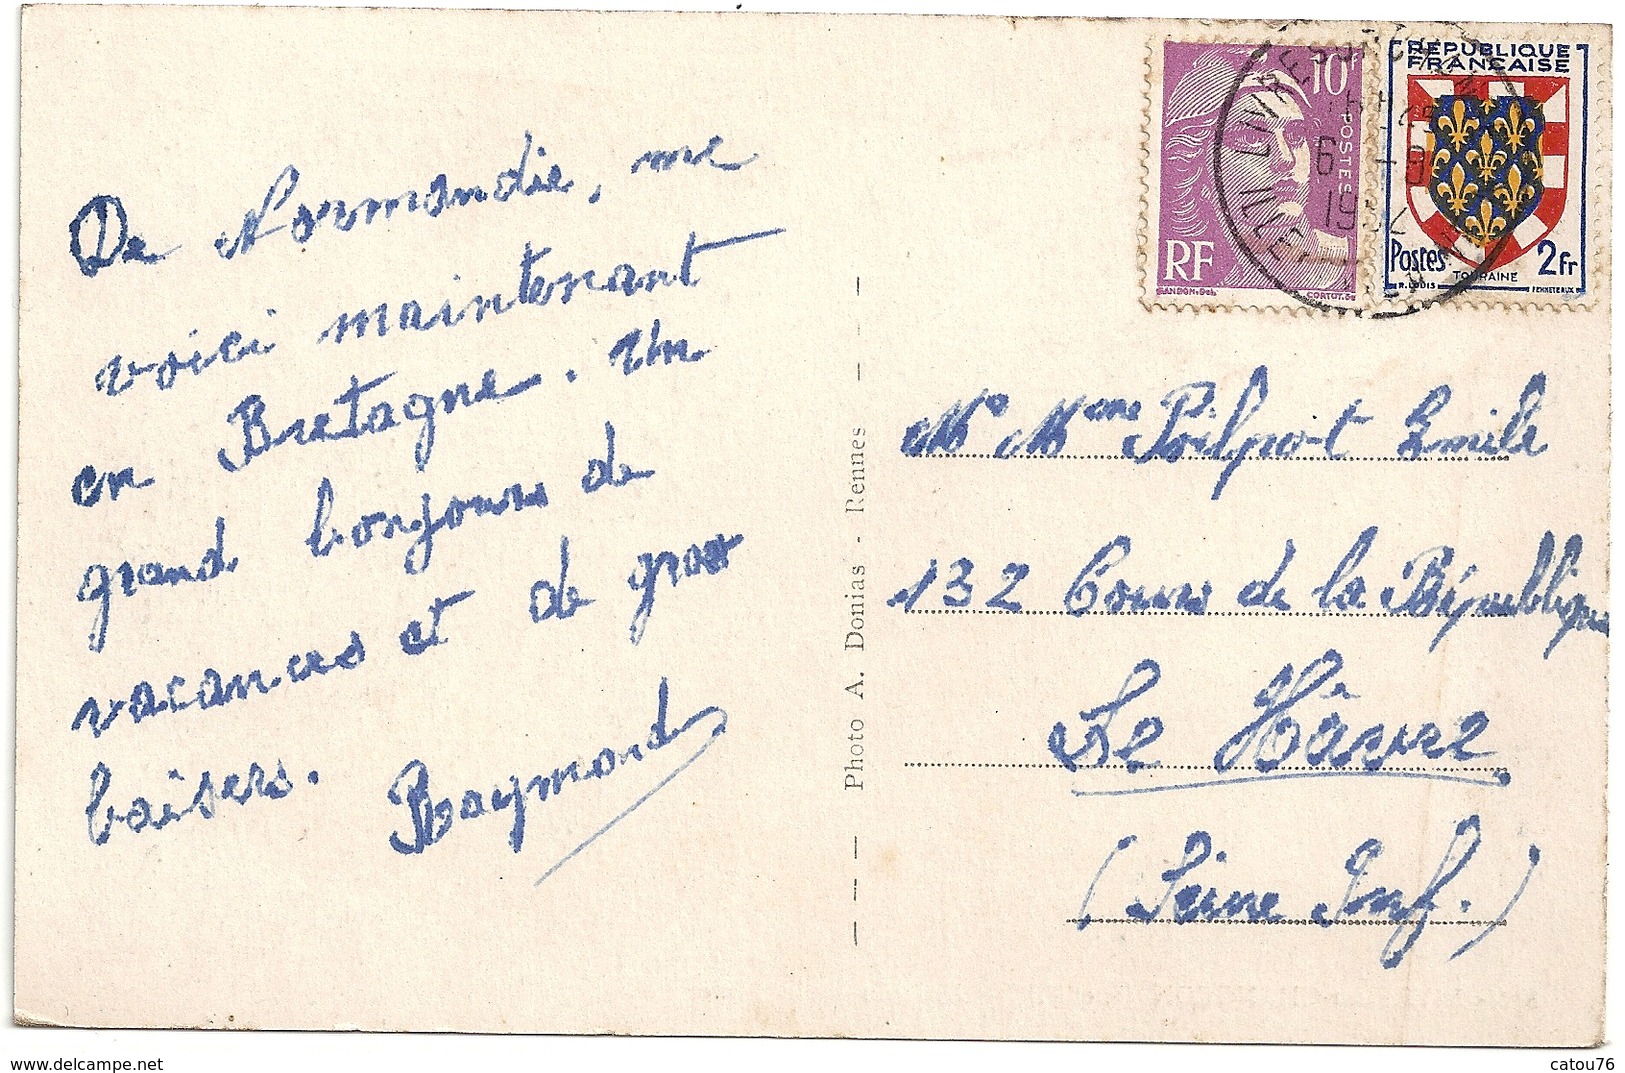 De Normandie, me
voici maintenant
en Bretagne. Un
grand bonjours de
vacances et de gros
baisers.
Raymond
Photo A. Donias - Rennes
10F
POSTES
RF
GANDON.Del.
CORTOT.Sc
REPUBLIQUE
FRANCAISE
Postes
2fr
TOURAINE
R. LOUIS
PENNETEAUX
6 - 8
1952
Mr Mme Poilpot Emile
132 Cours de la République
Le Hâvre
(Seine Inf.)
www.delcampe.net
catou76